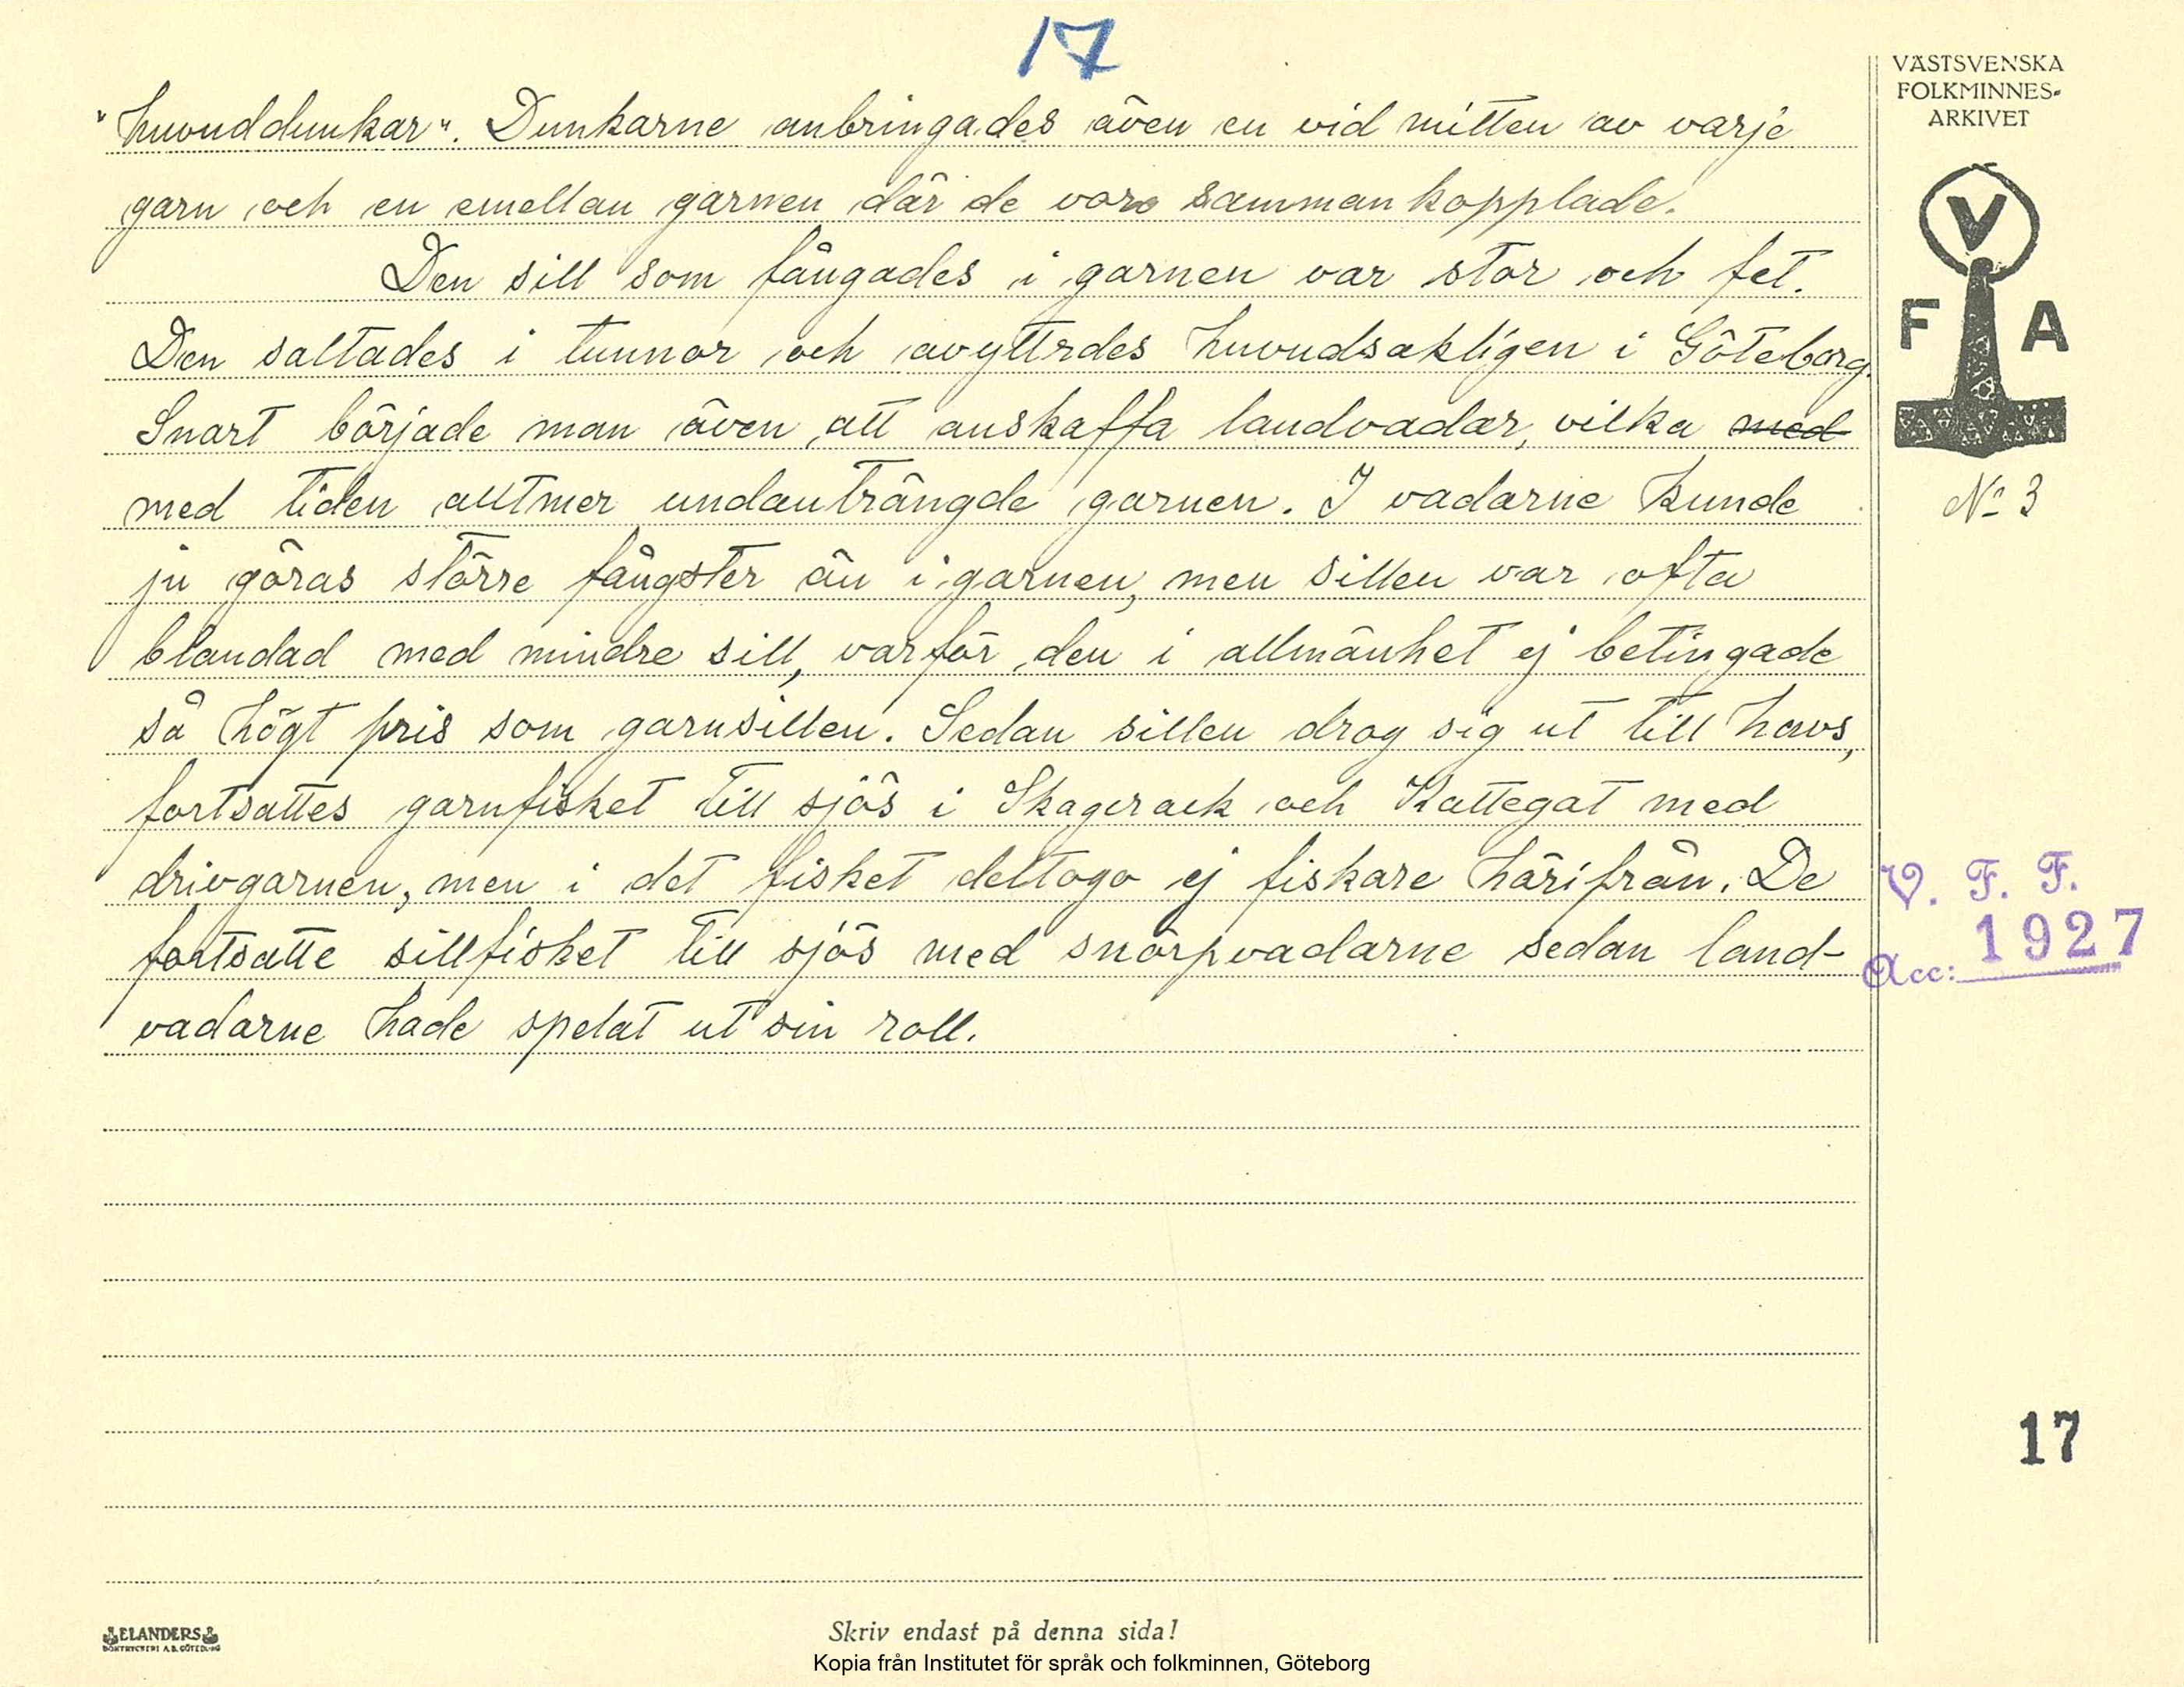 17
"huvuddunkar". Dunkarne anbringades även en vid mitten av varje
garn och en emellan garnen där de voro sammankopplade.
Den sill som fångades i garnen var stor och fet.
Den saltades i tunnor och avyttrdes huvudsakligen i Göteborg.
Snart började man även att anskaffa landvadar, vilka med
med tiden alltmer undanträngde garnen. I vadarne kunde
ju göras större fångster än i garnen, men sillen var ofta
blandad med mindre sill, varför den i allmänhet ej betingade
så högt pris som garnsillen. Sedan sillen drog sig ut till havs,
fortsattes garnfisket till sjös i Skagerack och Kattegat med
drivgarnen, men i det fisket deltogo ej fiskare härifrån. De
fortsatte sillfisket till sjös med snörpvadarne sedan land-
vadarne hade spelat ut sin roll.
VÄSTSVENSKA
FOLKMINNES-
ARKIVET
V
F A
No 3
V. F. F.
Acc: 1927
17
ELANDERS
BOKTRYCKERI A.B. GÖTEBORG
Skriv endast på denna sida!
Kopia från Institutet för språk och folkminnen, Göteborg